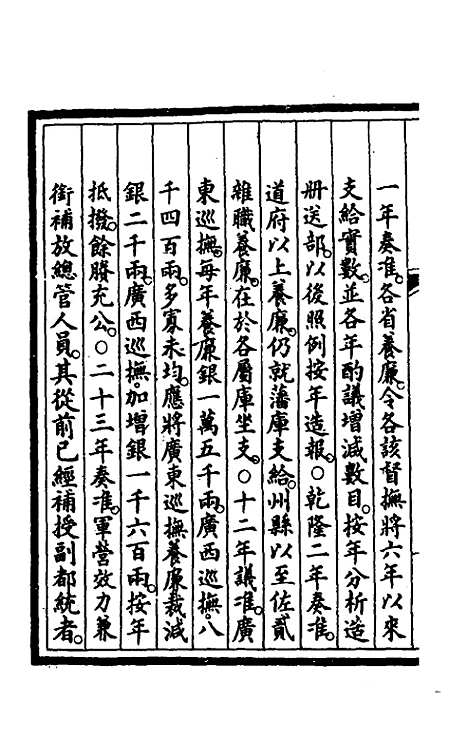 一年奏准。各省養廉。令各該督撫將六年以來
支給實數。並各年酌議增減數目。按年分析造
冊送部。以後照例按年造報。○乾隆二年奏准。
道府以上養廉。仍就藩庫支給。州縣以至佐貳
雜職養廉。在於各屬庫坐支。○十二年議准。廣
東巡撫。每年養廉銀一萬五千兩。廣西巡撫。八
千四百兩。多寡未均。應將廣東巡撫養廉裁減
銀二千兩。廣西巡撫。加增銀一千六百兩。按年
抵撥。餘賸充公。○二十三年奏准。軍營效力兼
銜補放總管人員。其從前已經補授副都統者。